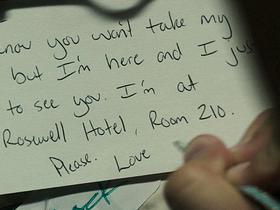 know you won't take my
but I'm here and I just
to see you. I'm at
Roswell Hotel, Room 210.
Please. Love